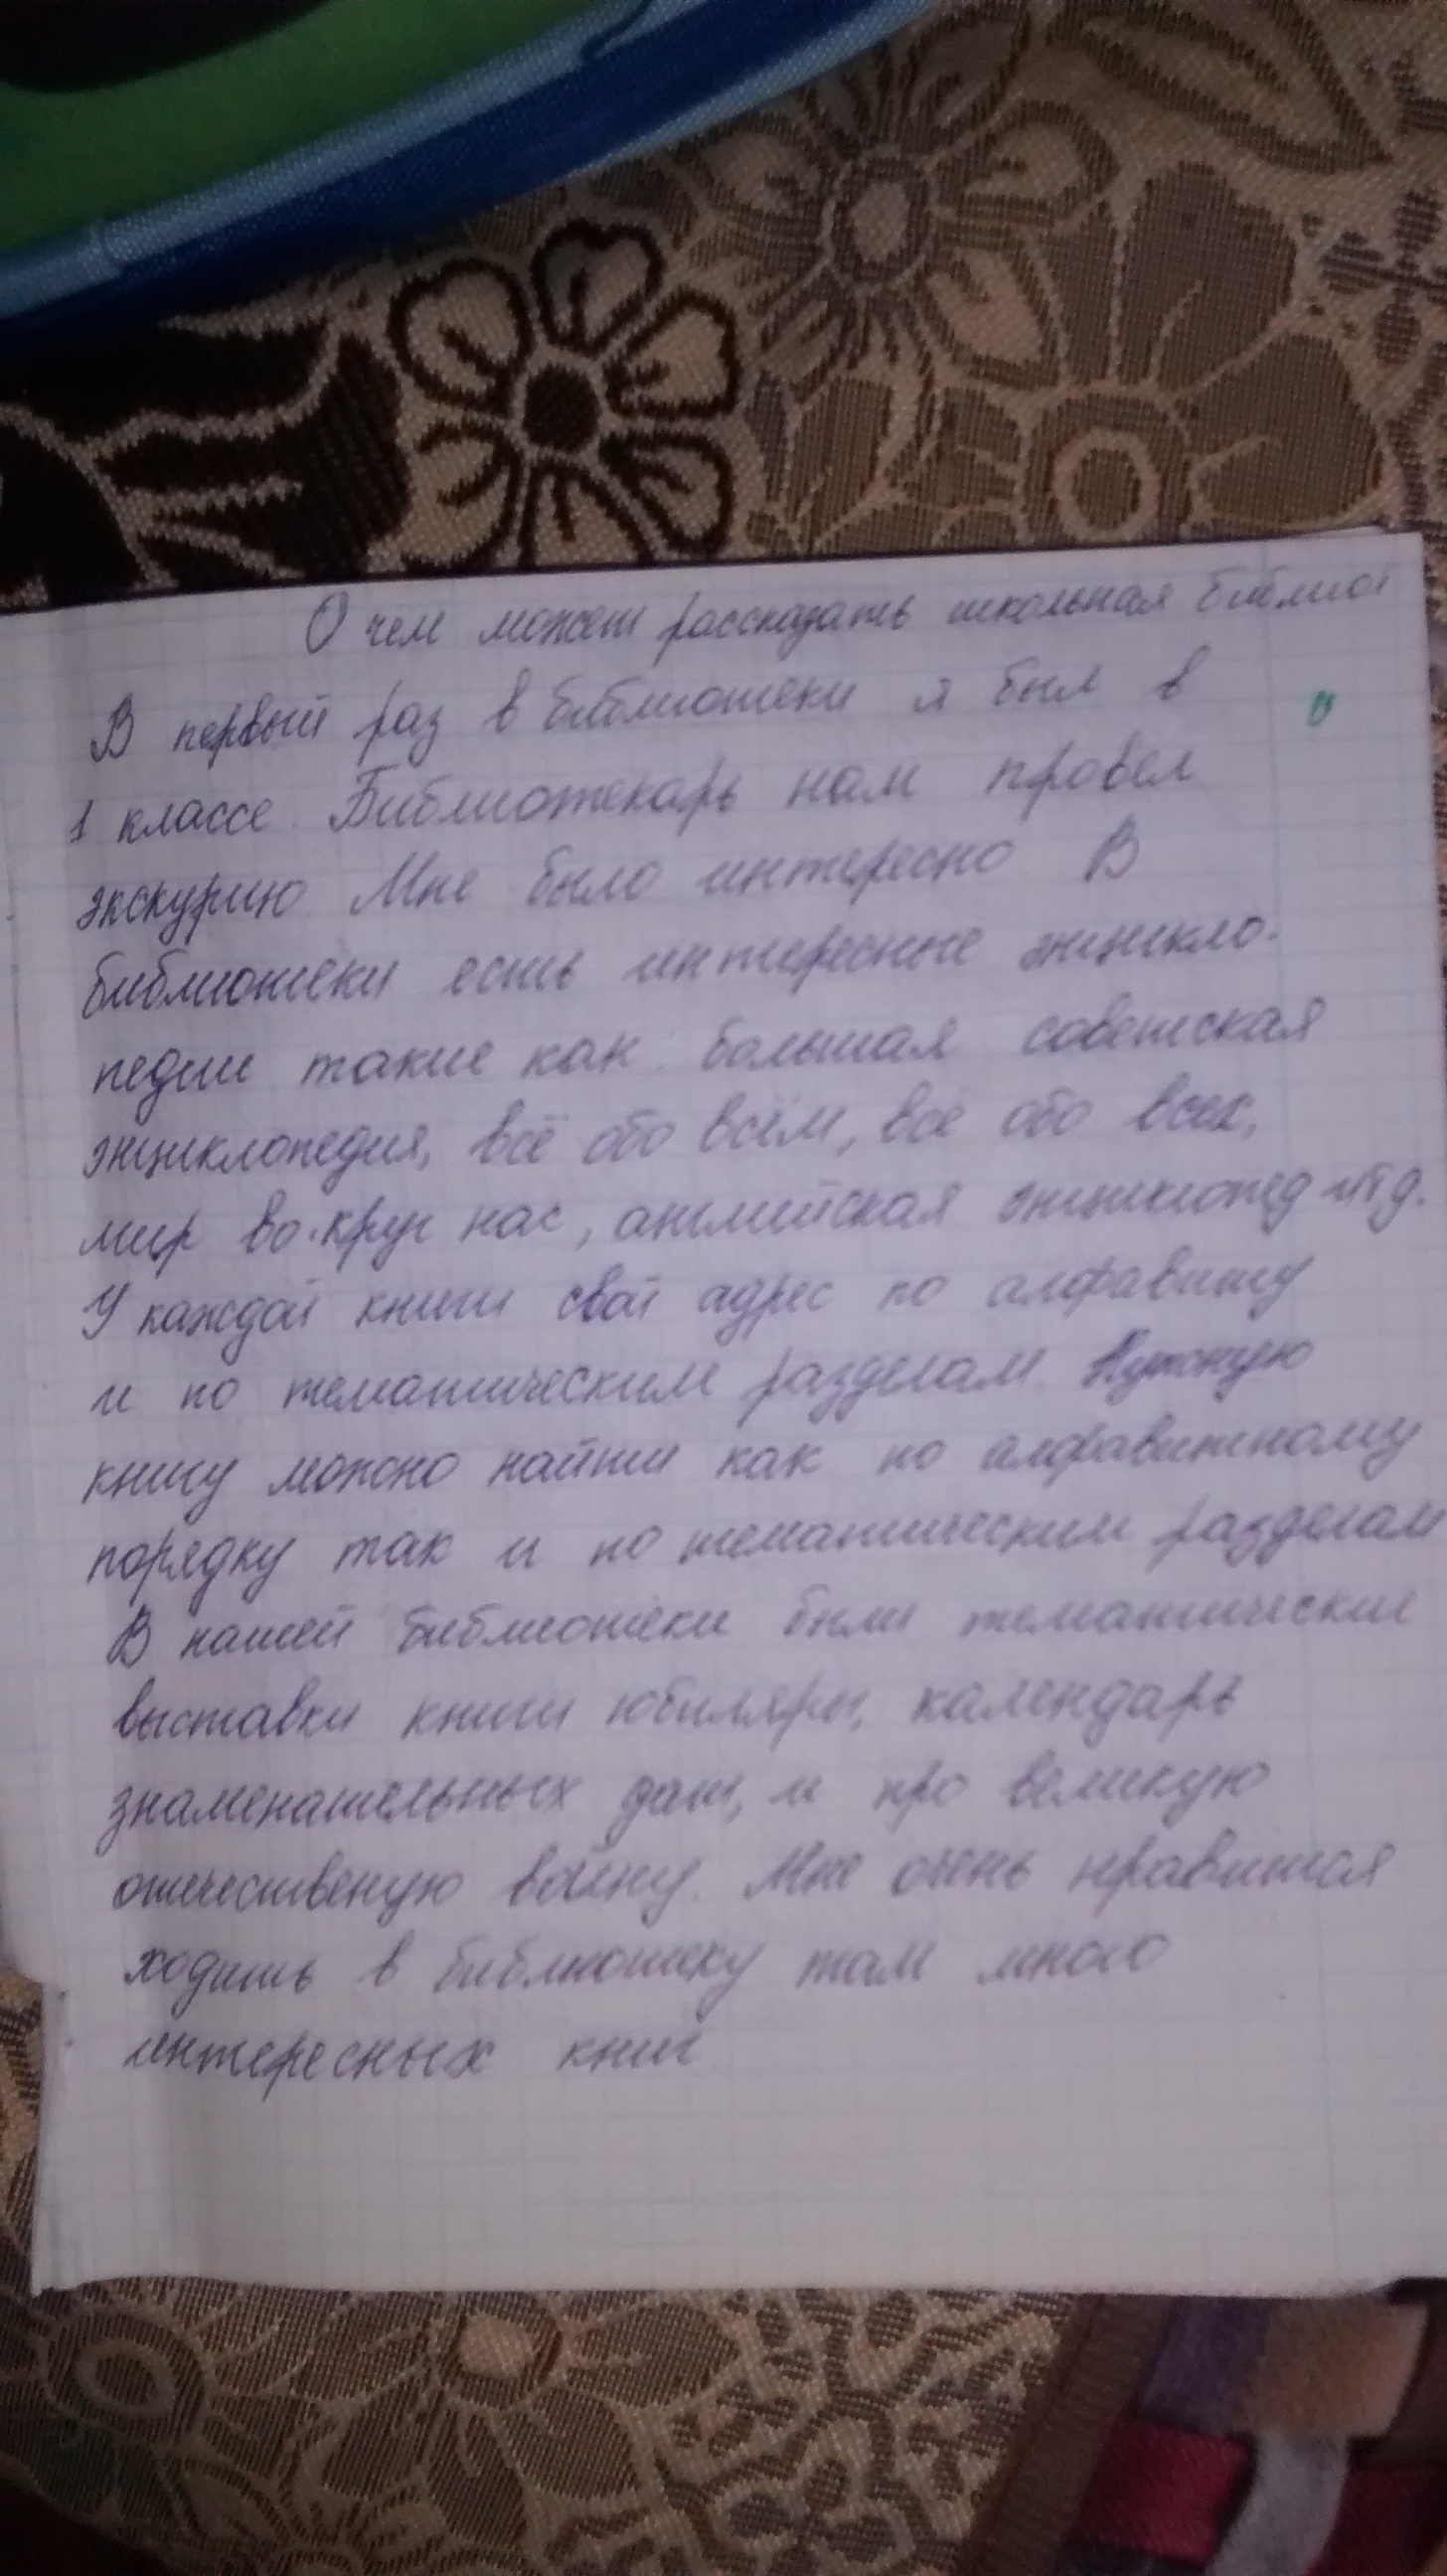 О чем может рассказать школьная библиот
В первый раз в библиотеки я был в
1 классе. Библиотекарь нам провел
экскурию. Мне было интересно В
библиотеки есть интересные энцикло-
педии такие как: большая советская
энциклопедия, всё обо всём, всё обо всех,
мир во.круг нас, английская энциклопед итд.
У каждой книги свой адрес по алфавиту
и по тематическим разделам. Нужную
книгу можно найти как по алфавитному
порядку так и по тематическим разделам
В нашей библиотеки были тематические
выставки книги юбиляры, календарь
знаменательных дат, и про великую
отечественую войну. Мне очень нравится
ходить в библиотеку там много
интересных книг